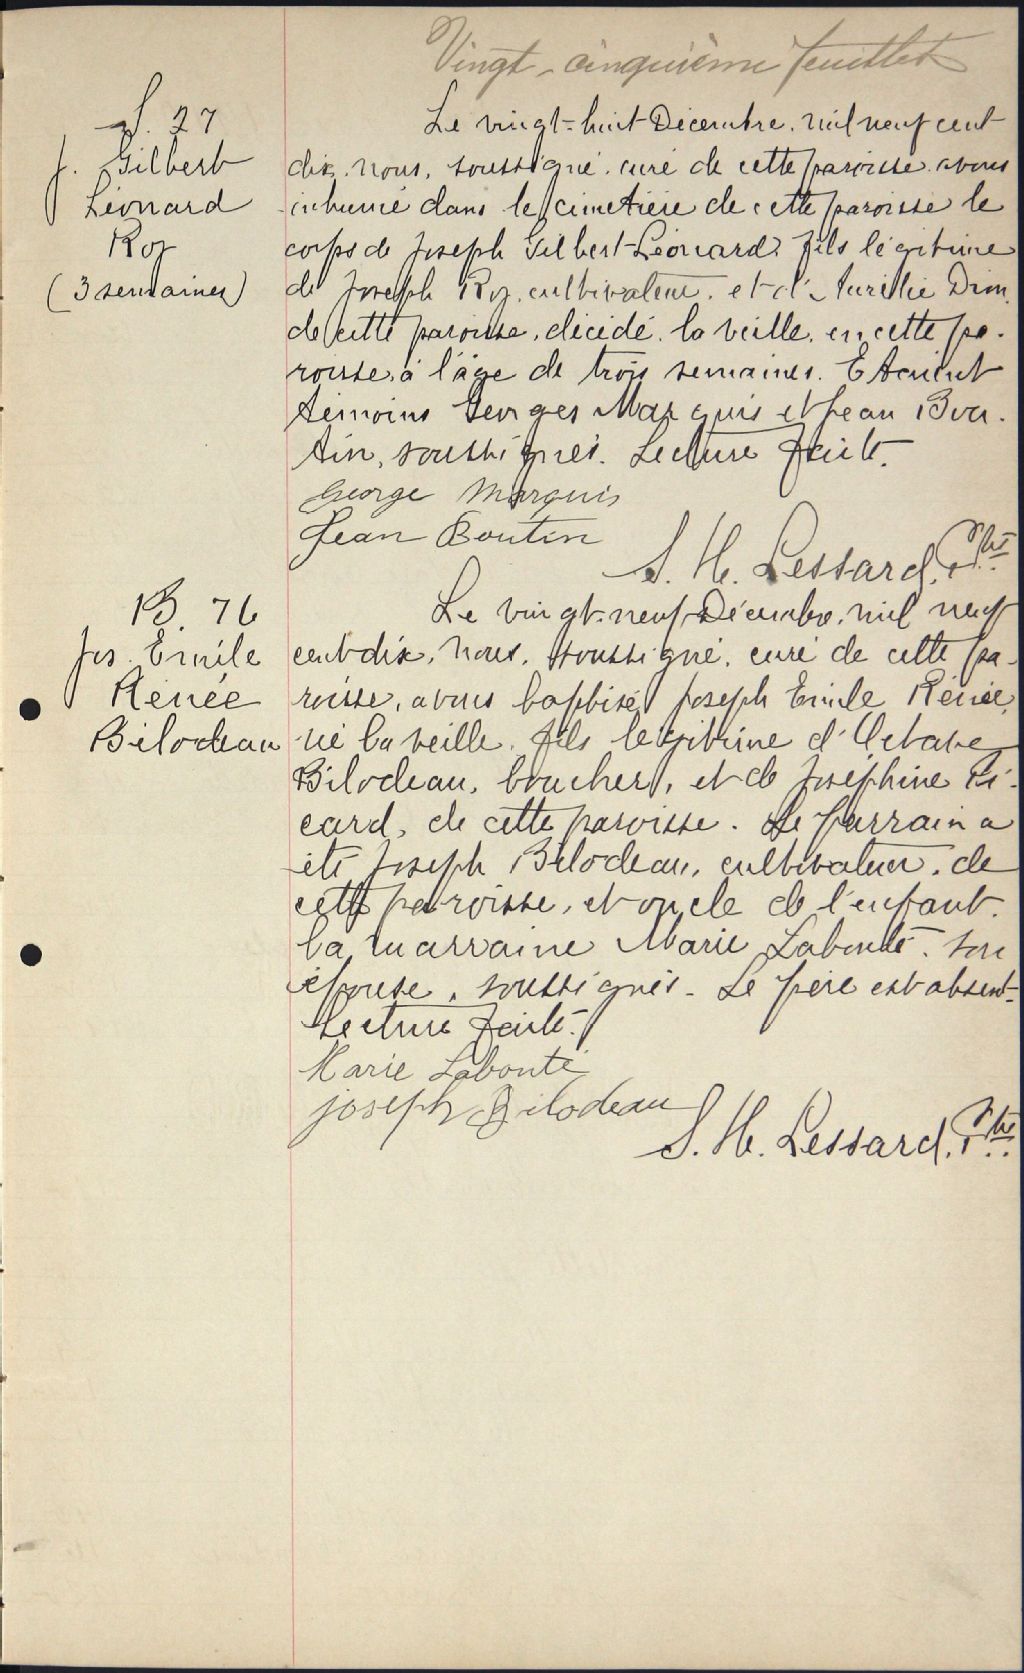 Vingt-cinquième feuillet
S. 27
J. Gilbert
Léonard
Roy
(3 semaines)
Le vingt-huit Décembre, mil neuf cent
dix, nous, soussigné, curé de cette paroisse avons
inhumé dans le cimetière de cette paroisse le
corps de Joseph Gilbert-Léonard, fils légitime
de Joseph Roy, cultivateur, et d'Aurélie Dion,
de cette paroisse, décédé, la veille, en cette pa-
roisse, à l'âge de trois semaines. Etaient
témoins Georges Marquis et Jean Bou-
tin, soussignés. Lecture faite.
George Marquis
Jean Boutin
S. H. Lessard, Ptre
B. 76
Jos. Emile
Rénée
Bilodeau
Le vingt-neuf Décembre, mil neuf
cent dix, nous, soussigné, curé de cette pa-
roisse, avons baptisé Joseph Emile Rénée,
né la veille, fils légitime d'Octave
Bilodeau, boucher, et de Joséphine Pi-
card, de cette paroisse. Le parrain a
été Joseph Bilodeau, cultivateur, de
cette paroisse, et oncle de l'enfant.
la marraine Marie Labonté, son
épouse, soussignés. Le père est absent.
Lecture faite.
Marie Labonté
Joseph Bilodeau
S. H. Lessard, Ptre